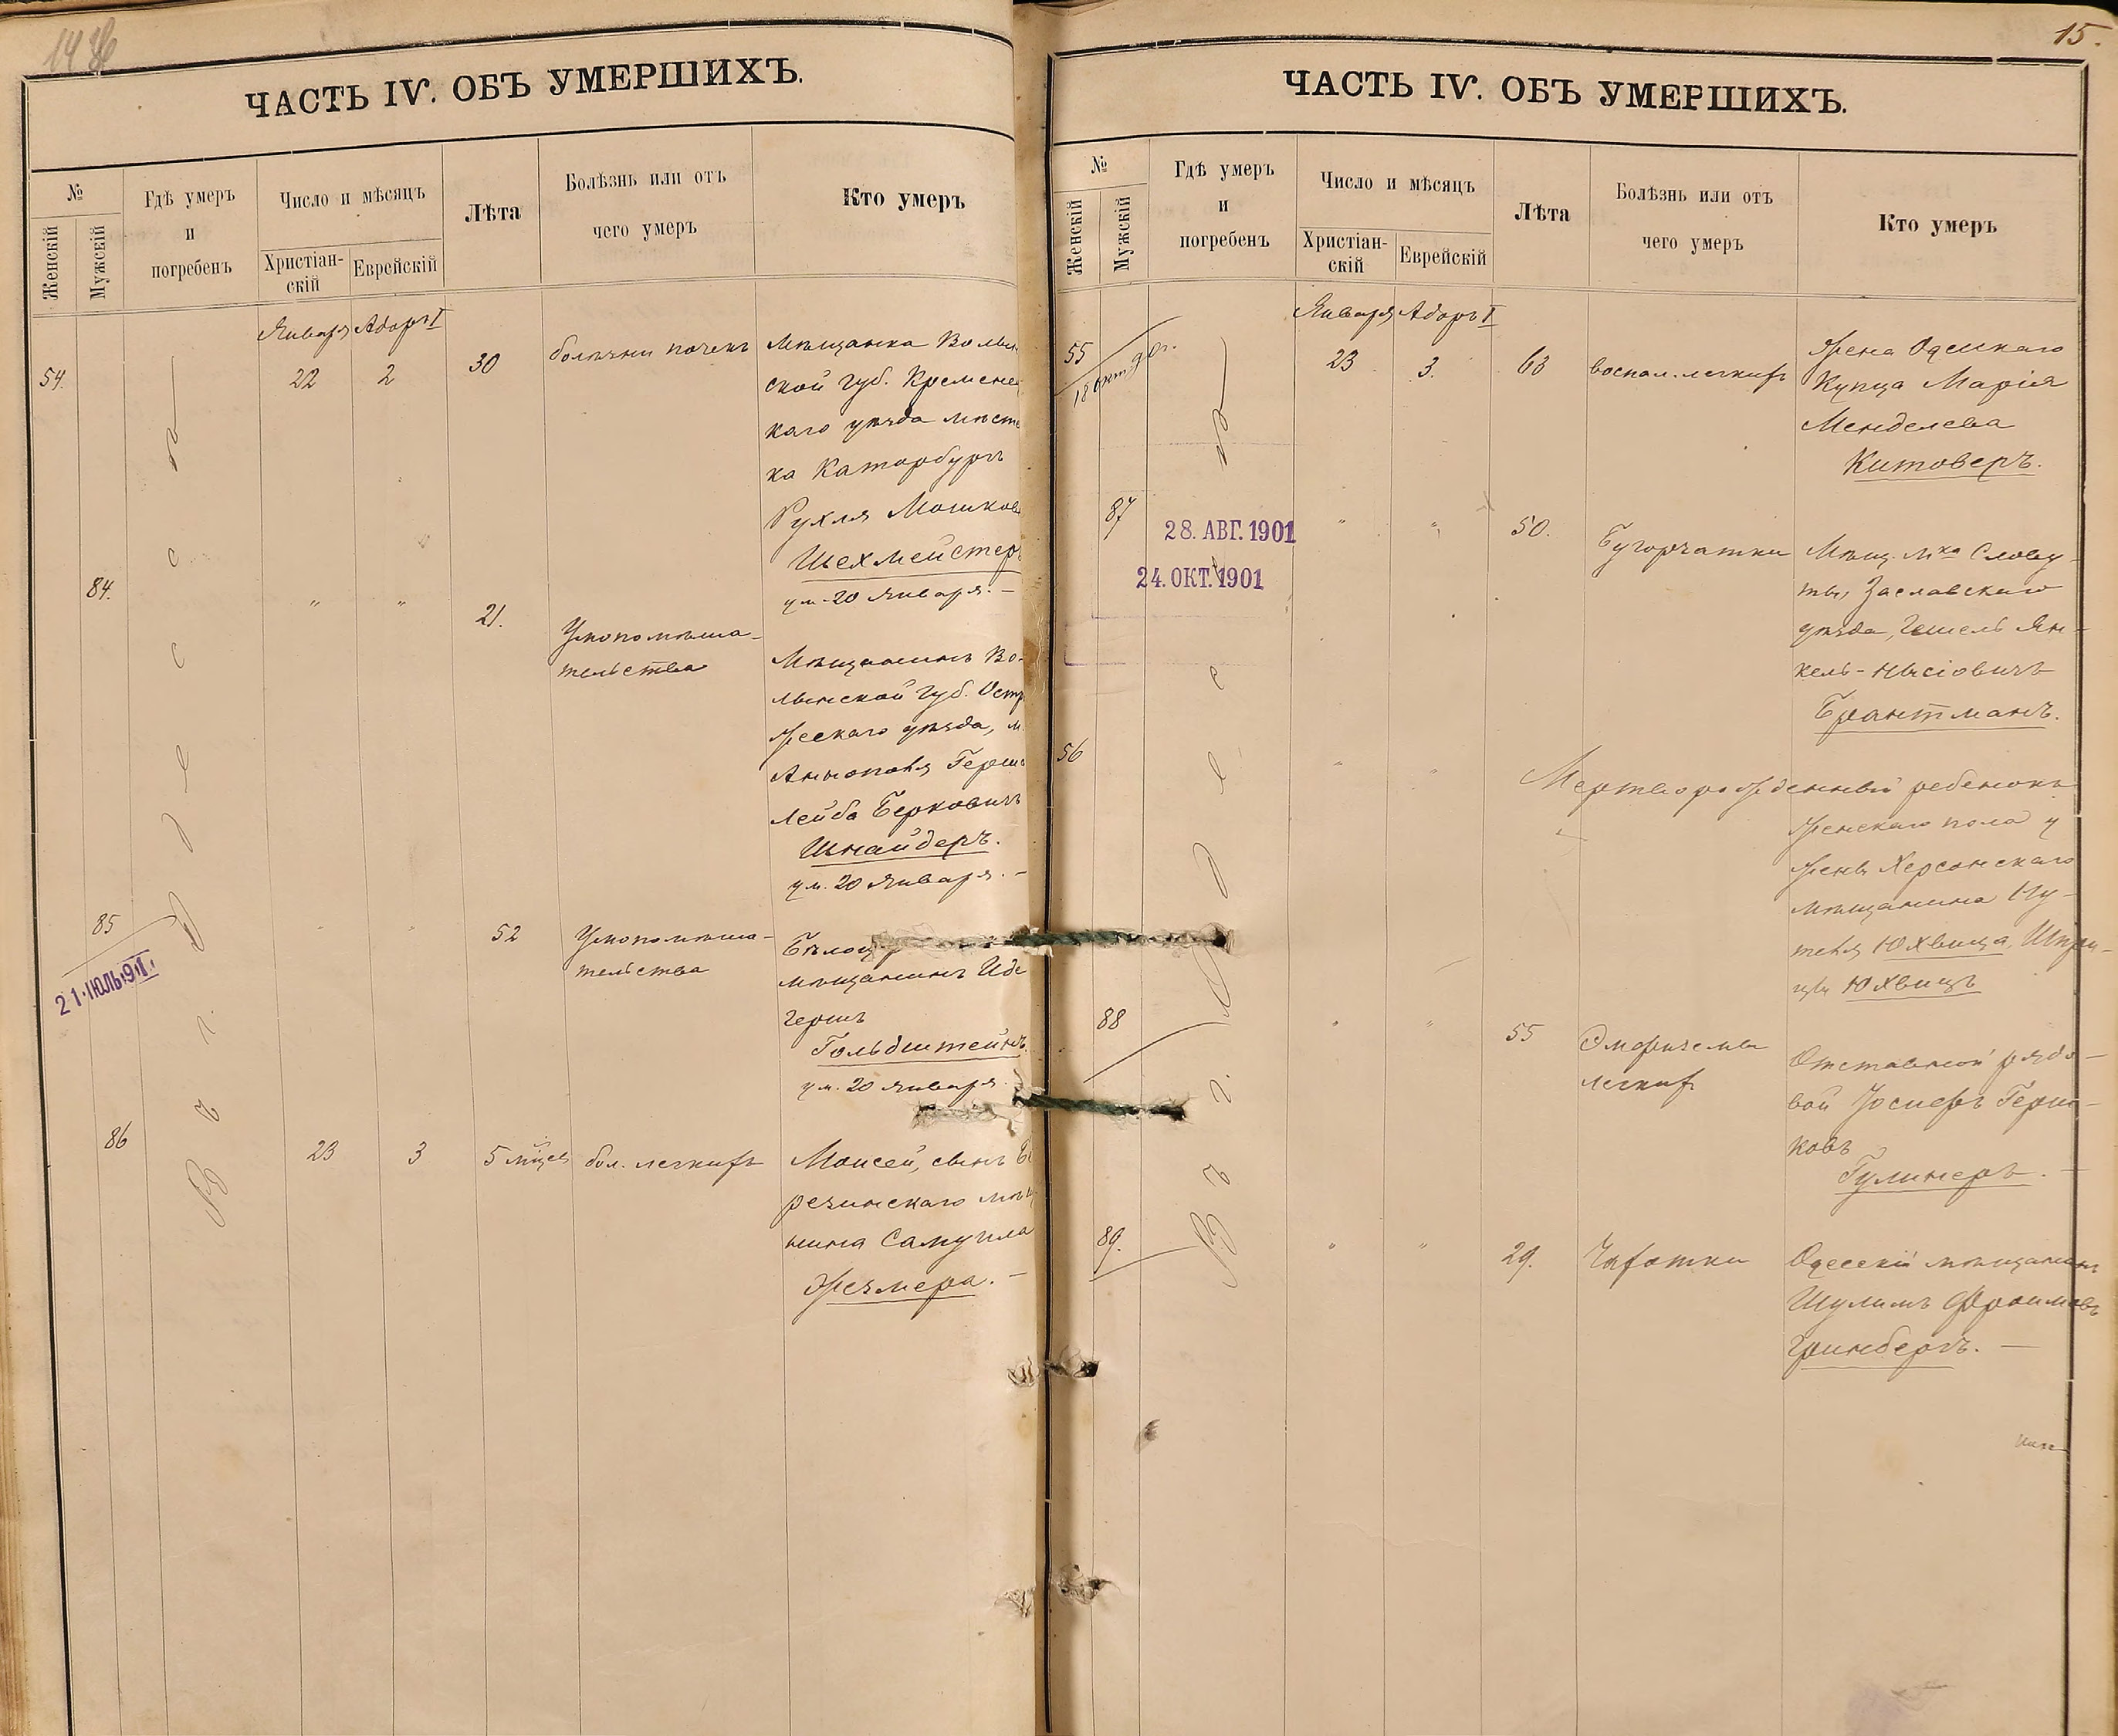 ЧАСТЬ IV. ОБЪ УМЕРШИХЪ.
№
Женскій
Мужскій
Гдѣ умеръ
и
погребенъ
Число и мѣсяцъ
Христіан-
скій
Еврейскій
Лѣта
Болѣзнь или отъ
чего умеръ
Кто умеръ
Января Адоръ I
54.
22
2
30
болѣзни почекъ
Мѣщанка Волын
ской губ. Кременец
каго уѣзда мѣсте
ка Катербургъ
Рухля Мошков
Шехмейстеръ
ум. 20 Января. —
84.
"
"
21.
Умопомѣша-
тельства
Мѣщанинъ Во-
лынской губ. Остр
жскаго уѣзда, м.
Аннополя Герш
Лейба Берковичъ
Шнайдеръ.
ум. 20 Января. —
85
21 ІЮЛЬ 91
"
"
52
Умопомѣша-
тельства
Бѣлоц
мѣщанинъ Иде
Гершъ
Гольдштейнъ
ум. 20 Января
86
23
3
5 мѣсяц
бол. легкихъ
Моисей, сынъ Бе
резинскаго мѣщ
нина Самуила
Жезмера. —
Въ г. Одессѣ
15.
ЧАСТЬ IV. ОБЪ УМЕРШИХЪ.
№
Женскій
Мужскій
Гдѣ умеръ
и
погребенъ
Число и мѣсяцъ
Христіан-
скій
Еврейскій
Лѣта
Болѣзнь или отъ
чего умеръ
Кто умеръ
Января Адоръ I
55
23
3.
63
воспал. легкихъ
Жена Одесскаго
Купца Марія
Менделева
Китоверъ.
87
28. АВГ. 1901
24. ОКТ. 1901
"
"
50.
Бугорчатки
Мѣщ. м-ка Славу-
ты, Заславскаго
уѣзда, Гешель Ян-
кель-Нысіовичъ
Брантманъ.
56
"
"
Мертворожденный ребенокъ
женскаго пола у
жены Херсонскаго
мѣщанина Ну-
теля Юхвица, Шпри-
цы Юхвицъ
88
"
"
55
Эмфиземы
легких
Отставной рядо-
вой Іосифъ Герш-
ковъ
Гулинеръ. —
89.
"
"
29.
Чахотки
Одесскій мѣщанинъ
Шулимъ Фроимовъ
Гринбергъ. —
Въ г. Одессѣ